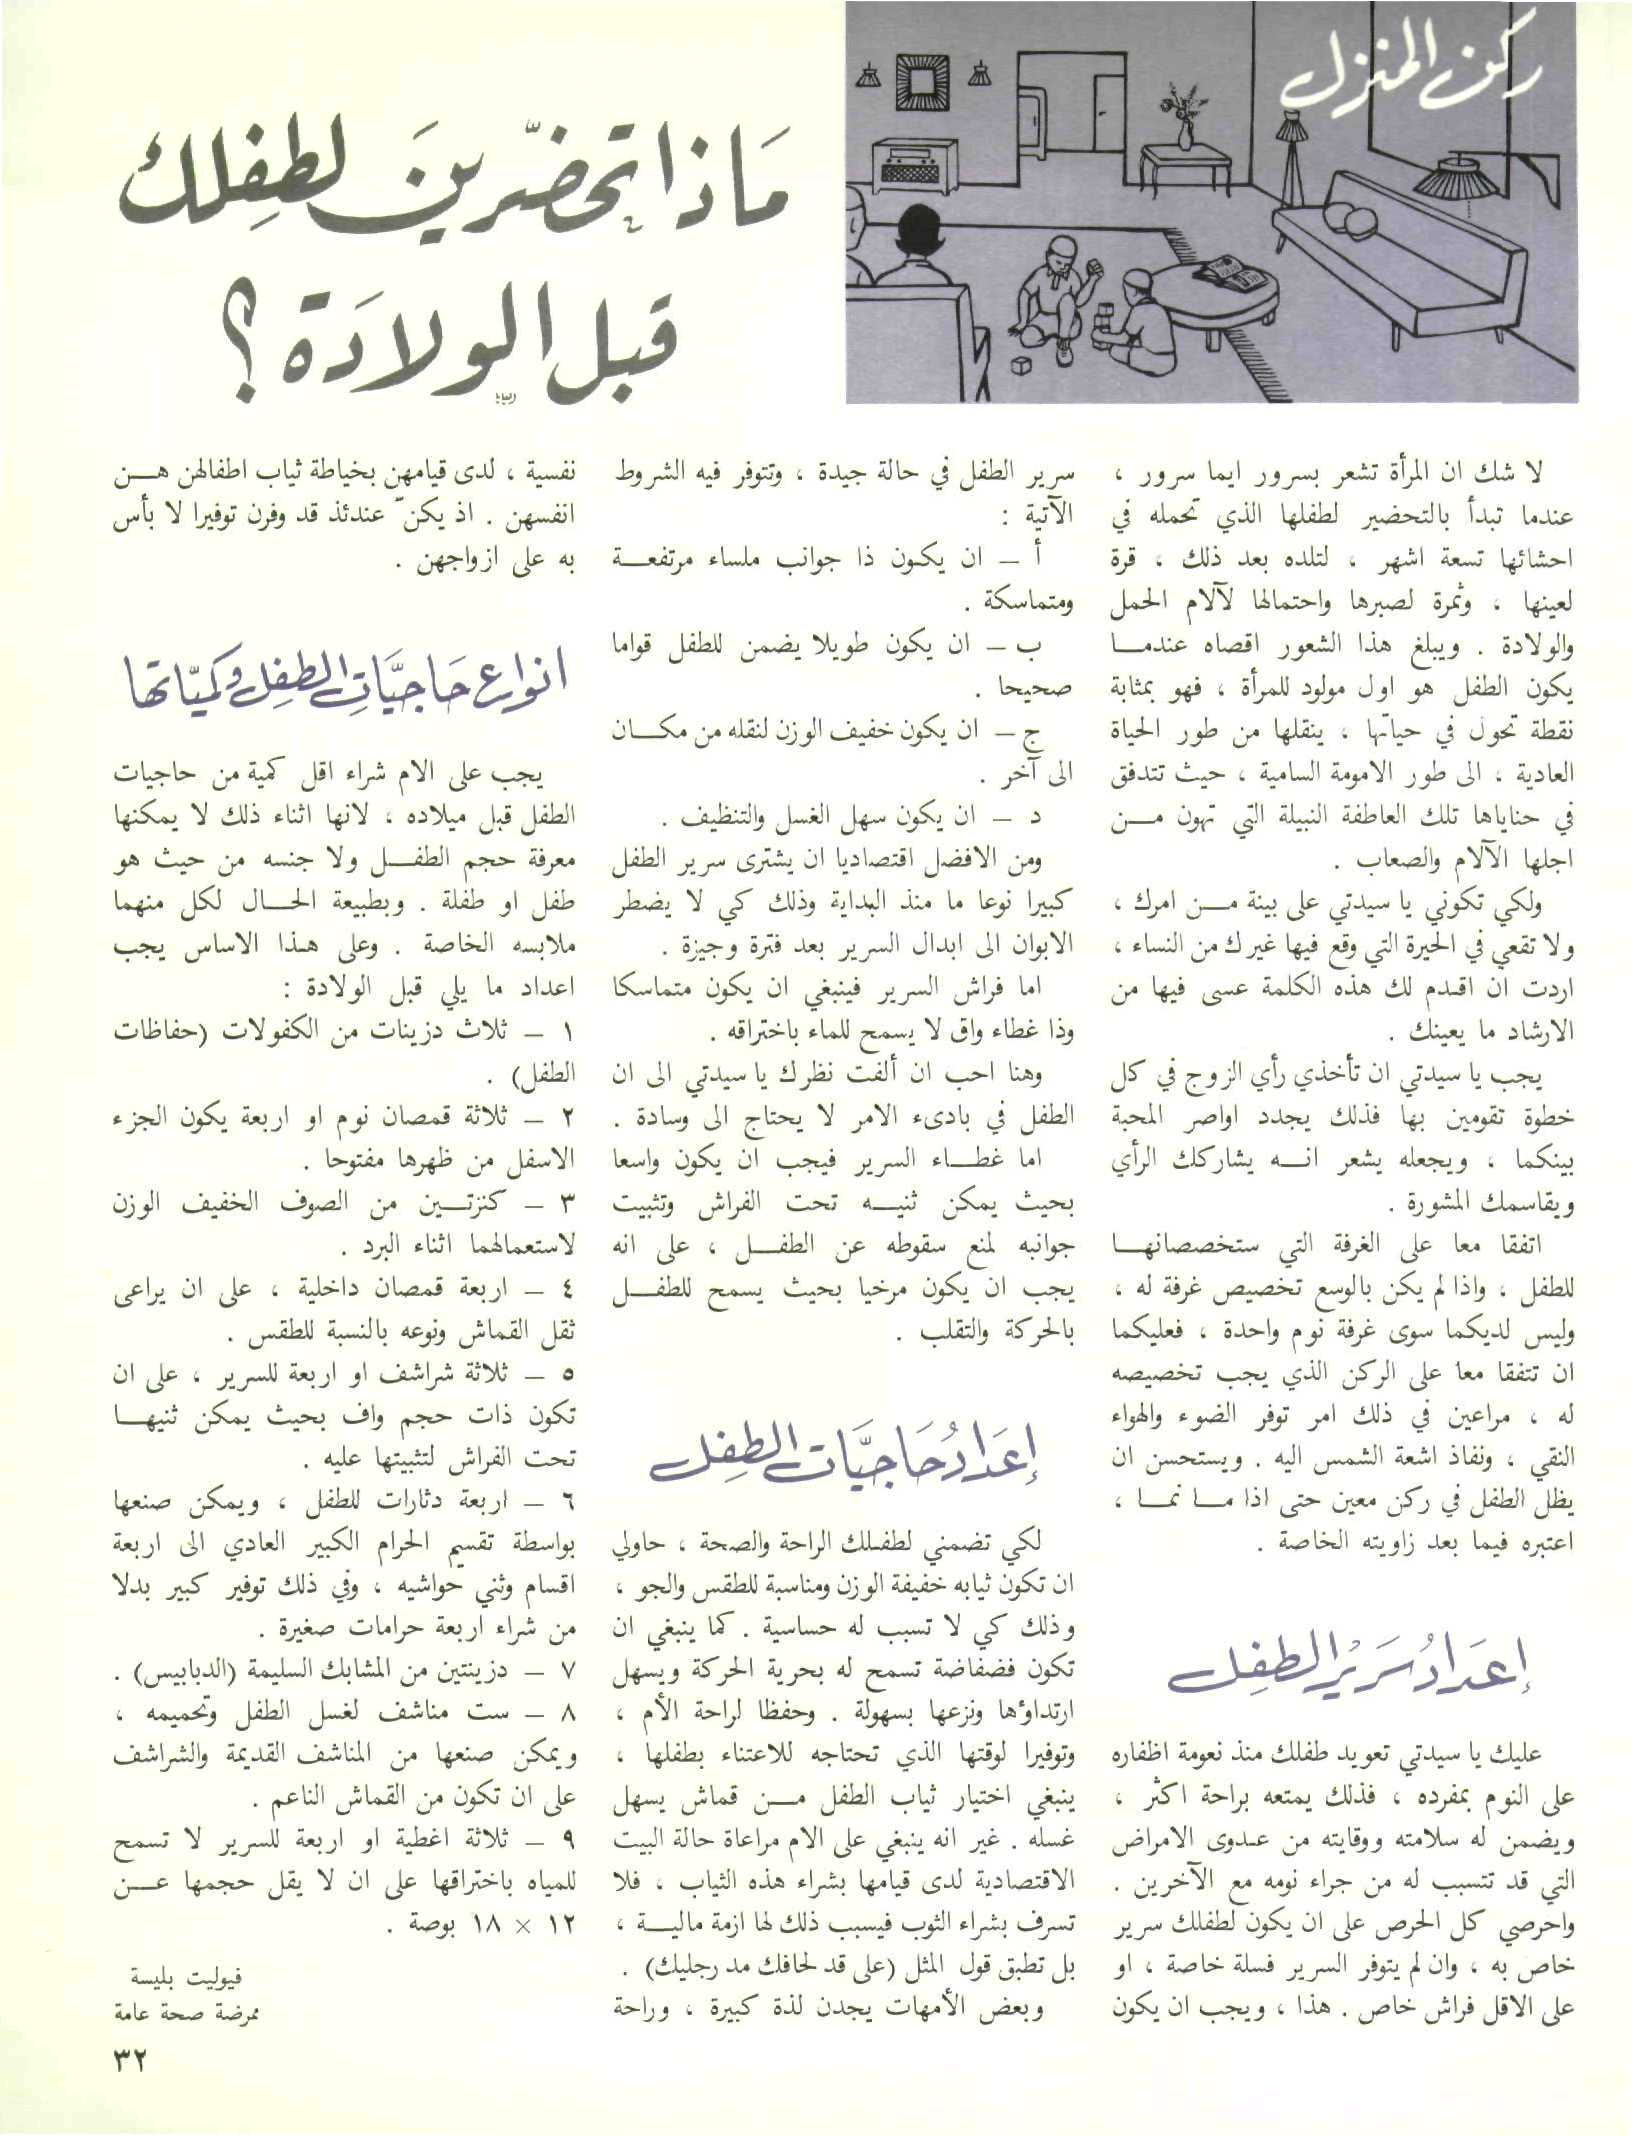 ركن المنزل
ماذا تحضّرين لطفلك
قبل الولادة ؟
لا شك ان المرأة تشعر بسرور ايما سرور ،
عندما تبدأ بالتحضير لطفلها الذي تحمله في
احشائها تسعة اشهر ، لتلده بعد ذلك ، قرة
لعينها ، وثمرة لصبرها واحتمالها لآلام الحمل
والولادة . ويبلغ هذا الشعور اقصاه عندمــا
يكون الطفل هو اول مولود للمرأة ، فهو بمثابة
نقطة تحول في حياتها ، ينقلها من طور الحياة
العادية ، الى طور الامومة السامية ، حيث تتدفق
في حناياها تلك العاطفة النبيلة التي تهون مــن
اجلها الآلام والصعاب .
ولكي تكوني يا سيدتي على بينة مــن امرك ،
ولا تقعي في الحيرة التي وقع فيها غيرك من النساء ،
اردت ان اقدم لك هذه الكلمة عسى فيها من
الارشاد ما يعينك .
يجب يا سيدتي ان تأخذي رأي الزوج في كل
خطوة تقومين بها فذلك يجدد اواصر المحبة
بينكما ، ويجعله يشعر انــه يشاركك الرأي
ويقاسمك المشورة .
اتفقا معا على الغرفة التي ستخصصانهــا
للطفل ، واذا لم يكن بالوسع تخصيص غرفة له ،
وليس لديكما سوى غرفة نوم واحدة ، فعليكما
ان تتفقا معا على الركن الذي يجب تخصيصه
له ، مراعين في ذلك امر توفر الضوء والهواء
النقي ، ونفاذ اشعة الشمس اليه . ويستحسن ان
يظل الطفل في ركن معين حتى اذا مــا نمــا ،
اعتبره فيما بعد زاويته الخاصة .
إعدادُ سَريرُ الطفِل
عليك يا سيدتي تعويد طفلك منذ نعومة اظفاره
على النوم بمفرده ، فذلك يمتعه براحة اكثر ،
ويضمن له سلامته ووقايته من عدوى الامراض
التي قد تتسبب له من جراء نومه مع الآخرين .
واحرصي كل الحرص على ان يكون لطفلك سرير
خاص به ، وان لم يتوفر السرير فسلة خاصة ، او
على الاقل فراش خاص . هذا ، ويجب ان يكون
سرير الطفل في حالة جيدة ، وتتوفر فيه الشروط
الآتية :
أ – ان يكون ذا جوانب ملساء مرتفعــة
ومتماسكة .
ب – ان يكون طويلا يضمن للطفل قواما
صحيحا .
ج – ان يكون خفيف الوزن لنقله من مكــان
الى آخر .
د – ان يكون سهل الغسل والتنظيف .
ومن الافضل اقتصاديا ان يشترى سرير الطفل
كبيرا نوعا ما منذ البداية وذلك كي لا يضطر
الابوان الى ابدال السرير بعد فترة وجيزة .
اما فراش السرير فينبغي ان يكون متماسكا
وذا غطاء واق لا يسمح للماء باختراقه .
وهنا احب ان ألفت نظرك يا سيدتي الى ان
الطفل في بادىء الامر لا يحتاج الى وسادة .
اما غطــاء السرير فيجب ان يكون واسعا
بحيث يمكن ثنيــه تحت الفراش وتثبيت
جوانبه لمنع سقوطه عن الطفــل ، على انه
يجب ان يكون مرخيا بحيث يسمح للطفــل
بالحركة والتقلب .
إعدادُ حَاجيَّات الطفِل
لكي تضمني لطفلك الراحة والصحة ، حاولي
ان تكون ثيابه خفيفة الوزن ومناسبة للطقس والجو ،
وذلك كي لا تسبب له حساسية . كما ينبغي ان
تكون فضفاضة تسمح له بحرية الحركة ويسهل
ارتداؤها ونزعها بسهولة . وحفظا لراحة الأم ،
وتوفيرا لوقتها الذي تحتاجه للاعتناء بطفلها ،
ينبغي اختيار ثياب الطفل مــن قماش يسهل
غسله . غير انه ينبغي على الام مراعاة حالة البيت
الاقتصادية لدى قيامها بشراء هذه الثياب ، فلا
تسرف بشراء الثوب فيسبب ذلك لها ازمة ماليــة ،
بل تطبق قول المثل (على قد لحافك مد رجليك) .
وبعض الأمهات يجدن لذة كبيرة ، وراحة
نفسية ، لدى قيامهن بخياطة ثياب اطفالهن هــن
انفسهن . اذ يكنّ عندئذ قد وفرن توفيرا لا بأس
به على ازواجهن .
انواع حَاجيَّاتِ الطفِل وكميّاتها
يجب على الام شراء اقل كمية من حاجيات
الطفل قبل ميلاده ، لانها اثناء ذلك لا يمكنها
معرفة حجم الطفــل ولا جنسه من حيث هو
طفل او طفلة . وبطبيعة الحــال لكل منهما
ملابسه الخاصة . وعلى هــذا الاساس يجب
اعداد ما يلي قبل الولادة :
١ – ثلاث دزينات من الكفولات (حفاظات
الطفل) .
٢ – ثلاثة قمصان نوم او اربعة يكون الجزء
الاسفل من ظهرها مفتوحا .
٣ – كنزتــين من الصوف الخفيف الوزن
لاستعمالهما اثناء البرد .
٤ – اربعة قمصان داخلية ، على ان يراعى
ثقل القماش ونوعه بالنسبة للطقس .
٥ – ثلاثة شراشف او اربعة للسرير ، على ان
تكون ذات حجم واف بحيث يمكن ثنيهــا
تحت الفراش لتثبيتها عليه .
٦ – اربعة دثارات للطفل ، ويمكن صنعها
بواسطة تقسيم الحرام الكبير العادي الى اربعة
اقسام وثني حواشيه ، وفي ذلك توفير كبير بدلا
من شراء اربعة حرامات صغيرة .
٧ – دزينتين من المشابك السليمة (الدبابيس) .
٨ – ست مناشف لغسل الطفل وتحميمه ،
ويمكن صنعها من المناشف القديمة والشراشف
على ان تكون من القماش الناعم .
٩ – ثلاثة اغطية او اربعة للسرير لا تسمح
للمياه باختراقها على ان لا يقل حجمها عــن
١٢ × ١٨ بوصة .
فيوليت بليسة
ممرضة صحة عامة
٣٢